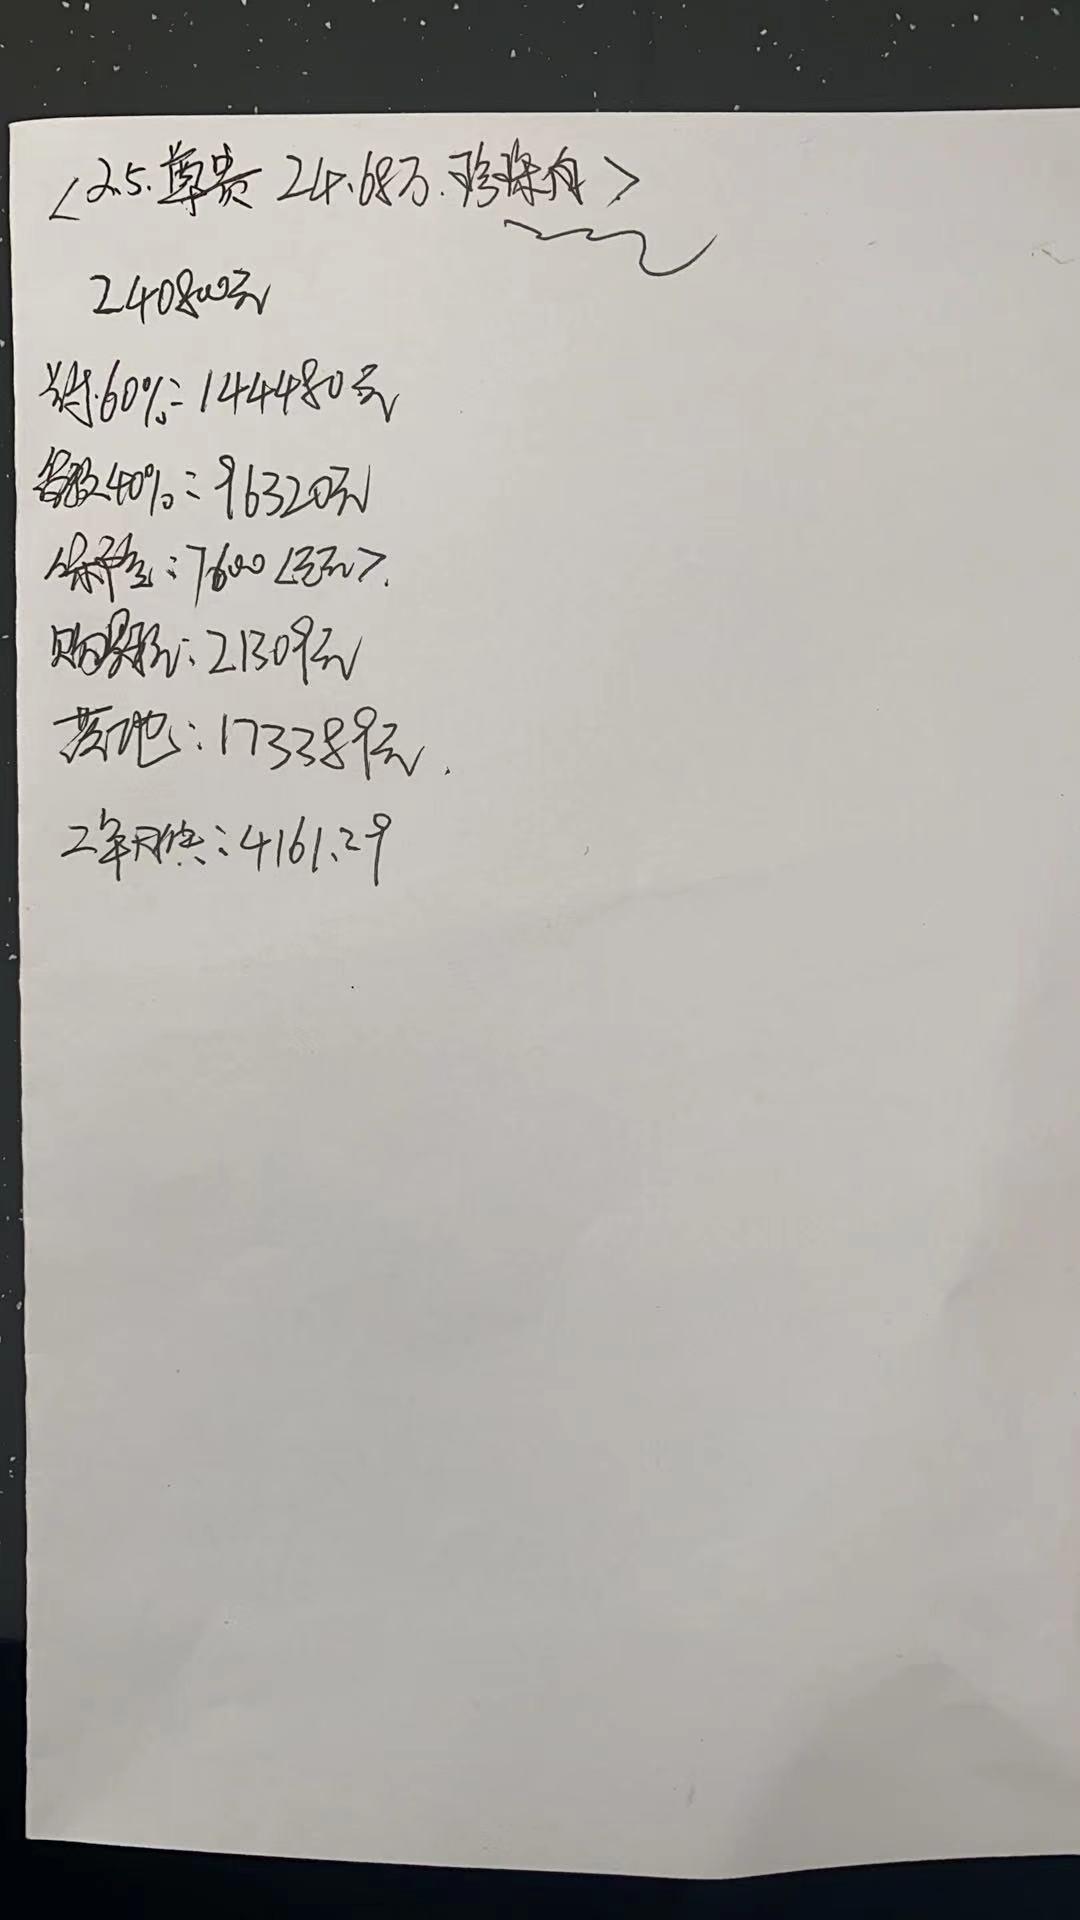 <2.5.尊贵 24.68万.珍珠白>
240800元
首付60%=144480元
贷款40%=96320元
保险:7600<左右>.
购置税:21309元
落地:173389元.
二年月供:4161.29